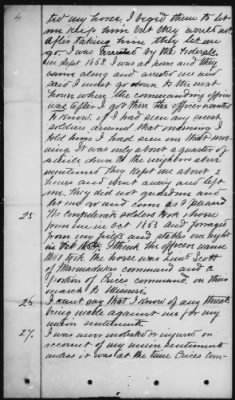 4
ted my horse, I begged them to let
me keep him but they would not
after taking him they let me
go. I was arrested by the Federals
in Sept 1862 I was at home and they
came along and arrested me and
said I must go down to the next
house where the commanding officer
was after I got there the officer wanted
to know, if I had seen any rebel
soldiers around that morning I
told him I had seen on that mor-
ning. It was only about a quarter of
a mile down at the neighbors above
mentioned they kept me about 2
hours and went away and left
me. they did not guard me and
let me go and come as I pleased
25 The confederate soldiers took a horse
from me in Oct 1863 and foraged
from my fields and stable one night
in Oct 1864. I think the officers name
that took the horse was Lieut Scott
of Marmadukes command and a
portion of Prices command, on this
march to Missouri.
26 I cant say that I know of any threats
being made against me for my
union sentiments.
27. I was never molested or injured on
account of my union sentiments
unless it was at the time Prices com-